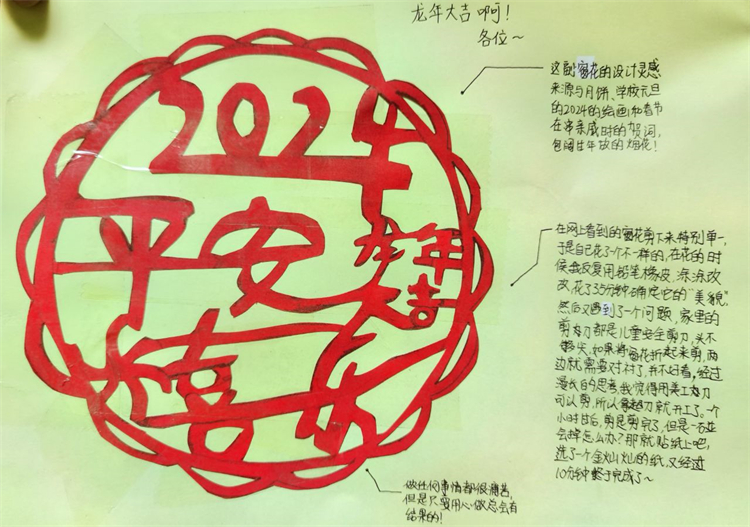 龙年大吉啊！
各位～
2024
平安
龙年
大吉
喜乐
这副窗花的设计灵感
来源与月饼、学校元旦
的2024的绘画和春节
在串亲戚时的贺词，
包阔往年放的烟花！
在网上看到的窗花剪下来特别单一，
于是自己花了一个不一样的，在花的时
候我反复用铅笔橡皮涂涂改
改，花了35分钟确定它的“美貌”，
然后又遇到了一个问题，家里的
剪刀都是儿童安全剪刀，头不
够尖，如果将窗花折起来剪，两
边就需要对衬了，并不好看，经过
漫长的思考，我觉得用美工刀
可以剪，所以拿起刀就开工了。一个
小时过后，剪是剪完了，但是一拉
会掉怎么办？那就贴纸上吧，
选了一个金灿灿的纸，又经过
10分钟终于完成了～
做任何事情都很痛苦，
但是只要用心做总会有
结果的！